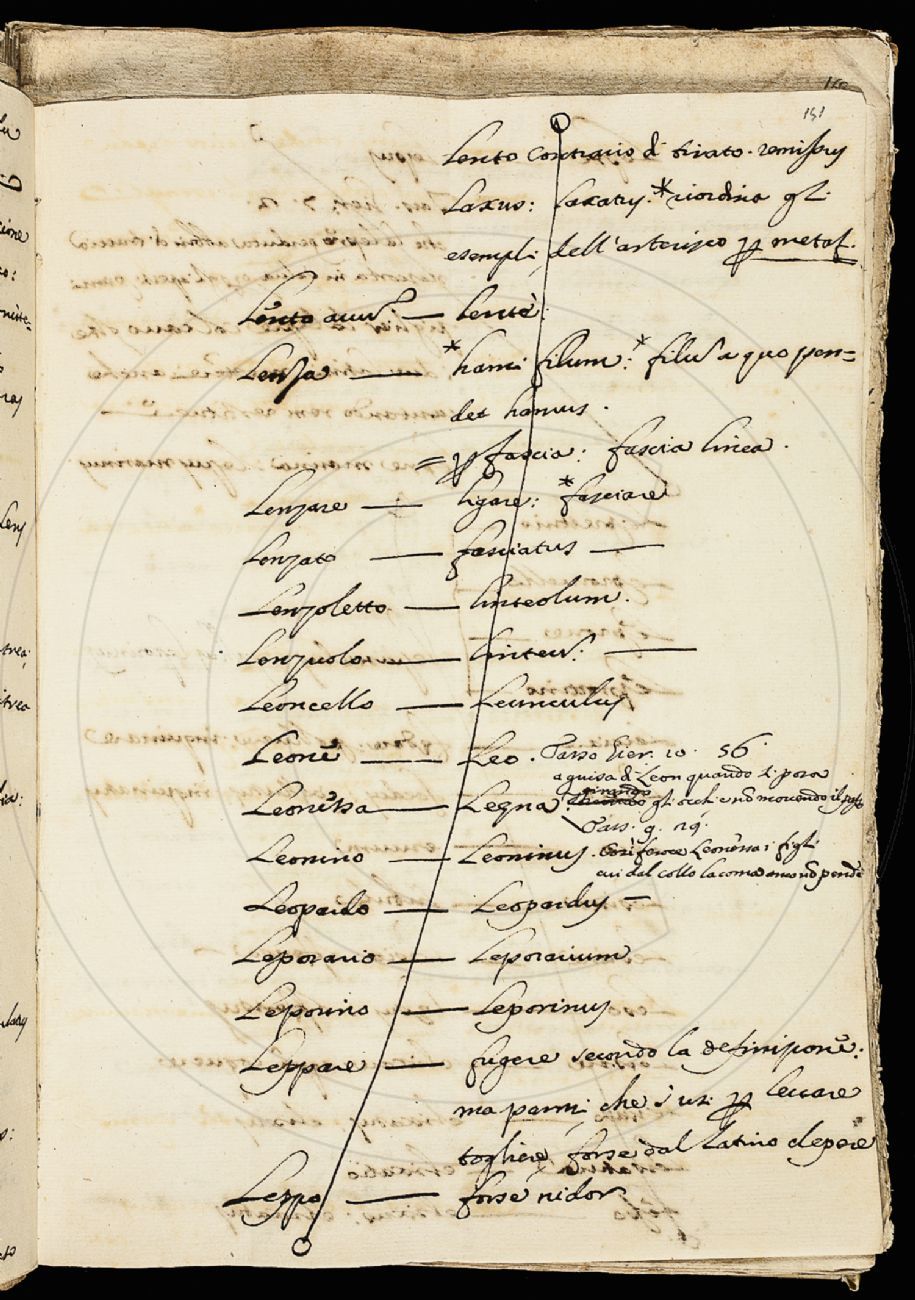 191
Lento contrario di tirato. remissus
Laxus: laxatus. * riordina gli
esempli dell'asterisco per metaf.
Lento avv: — lentè.
Lenza — * hami filum: * filum a quo pen=
det hamus.
= per fascia: fascia linea.
Lenzare — ligare: * fasciare
Lenzato — fasciatus —
Lenzoletto — linteolum.
Lenzuolo — linteum. —
Leoncello — Leunculus
Leone — Leo. Tasso Gier. 10. 56.
a guisa di Leon quando si posa
girando gli occhi e non movendo il passo
Leonessa — Leæna.
Tass. 9. 29.
Leonino — Leoninus. Così feroce Leonessa i figli
cui dal collo la coma anco non pende
Leopardo — Leopardus —
Leporario — Leporarium
Leporino — Leporinus
Leppare — fugere secondo la definizione:
ma parmi che s'usi per levare
togliere, forse dal latino clepere
Leppo — forse nidor.